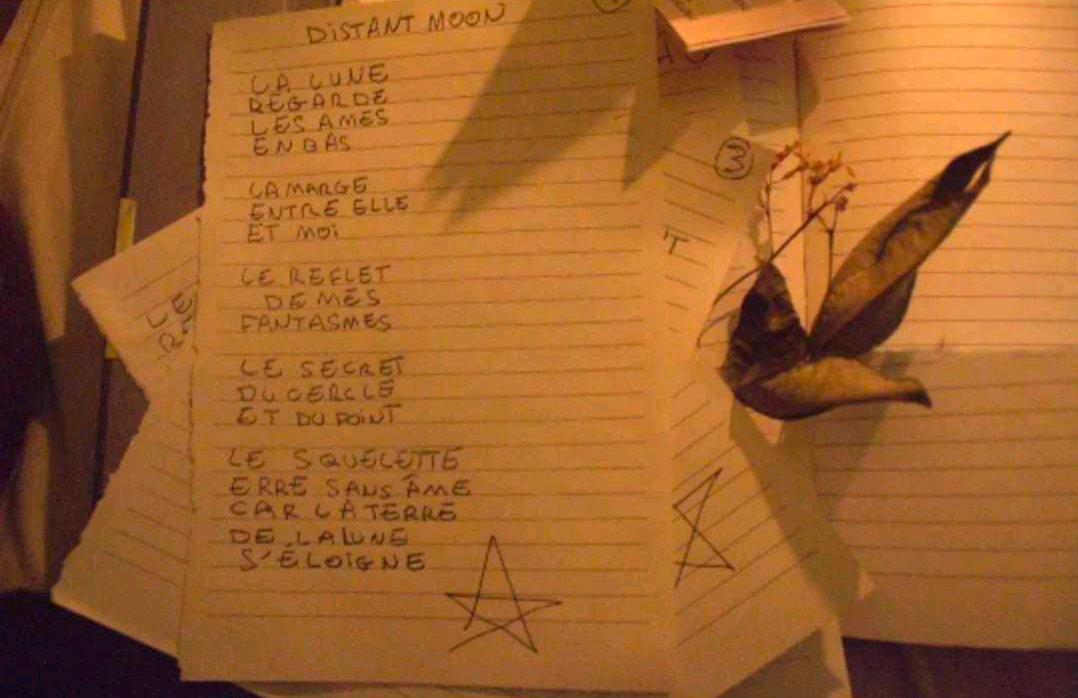 DISTANT MOON
LA LUNE
REGARDE
LES AMES
EN BAS
LA MARGE
ENTRE ELLE
ET MOI
LE REFLET
DE MES
FANTASMES
LE SECRET
DU CERCLE
ET DU POINT
LE SQUELETTE
ERRE SANS ÂME
CAR LA TERRE
DE LA LUNE
S'ÉLOIGNE
3